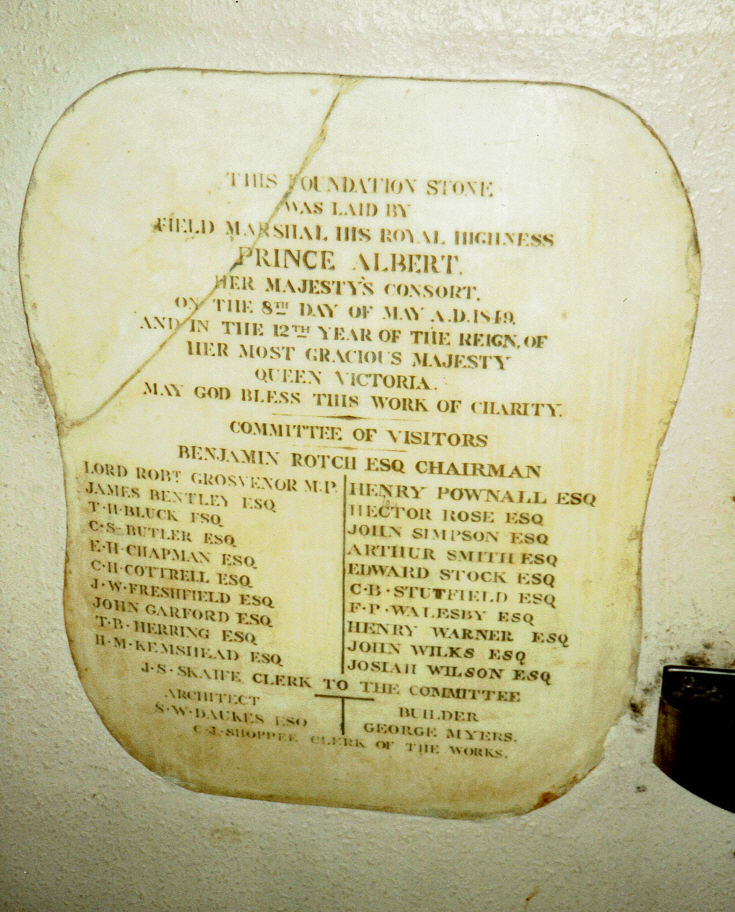 THIS FOUNDATION STONE
WAS LAID BY
FIELD MARSHAL HIS ROYAL HIGHNESS
PRINCE ALBERT.
HER MAJESTY'S CONSORT.
ON THE 8TH DAY OF MAY A.D. 1849.
AND IN THE 12TH YEAR OF THE REIGN, OF
HER MOST GRACIOUS MAJESTY
QUEEN VICTORIA.
MAY GOD BLESS THIS WORK OF CHARITY.
COMMITTEE OF VISITORS
BENJAMIN ROTCH ESQ CHAIRMAN
LORD ROBT GROSVENOR M.P.
JAMES BENTLEY ESQ
T·H·BLUCK ESQ
C·S·BUTLER ESQ
E·H·CHAPMAN ESQ
C·H·COTTRELL ESQ
J·W·FRESHFIELD ESQ
JOHN GARFORD ESQ
T·B·HERRING ESQ
H·M·KEMSHEAD ESQ
HENRY POWNALL ESQ
HECTOR ROSE ESQ
JOHN SIMPSON ESQ
ARTHUR SMITH ESQ
EDWARD STOCK ESQ
C·B·STUTFIELD ESQ
F·P·WALESBY ESQ
HENRY WARNER ESQ
JOHN WILKS ESQ
JOSIAH WILSON ESQ
J·S·SKAIFE CLERK TO THE COMMITTEE
ARCHITECT
S·W·DAUKES ESQ
BUILDER
GEORGE MYERS.
C·J·SHOPPEE CLERK OF THE WORKS.